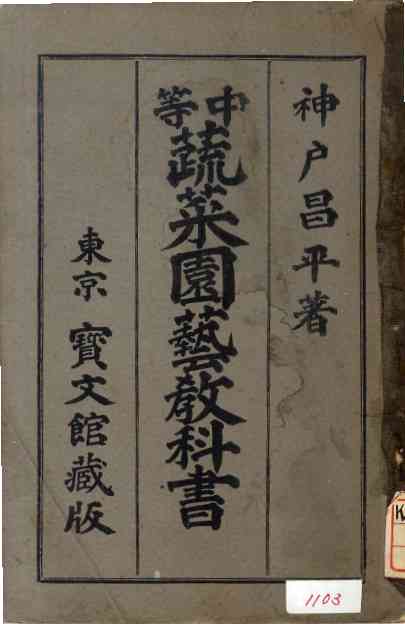 神戸昌平著
中等
蔬菜園藝教科書
東京 寶文館藏版
1103
K